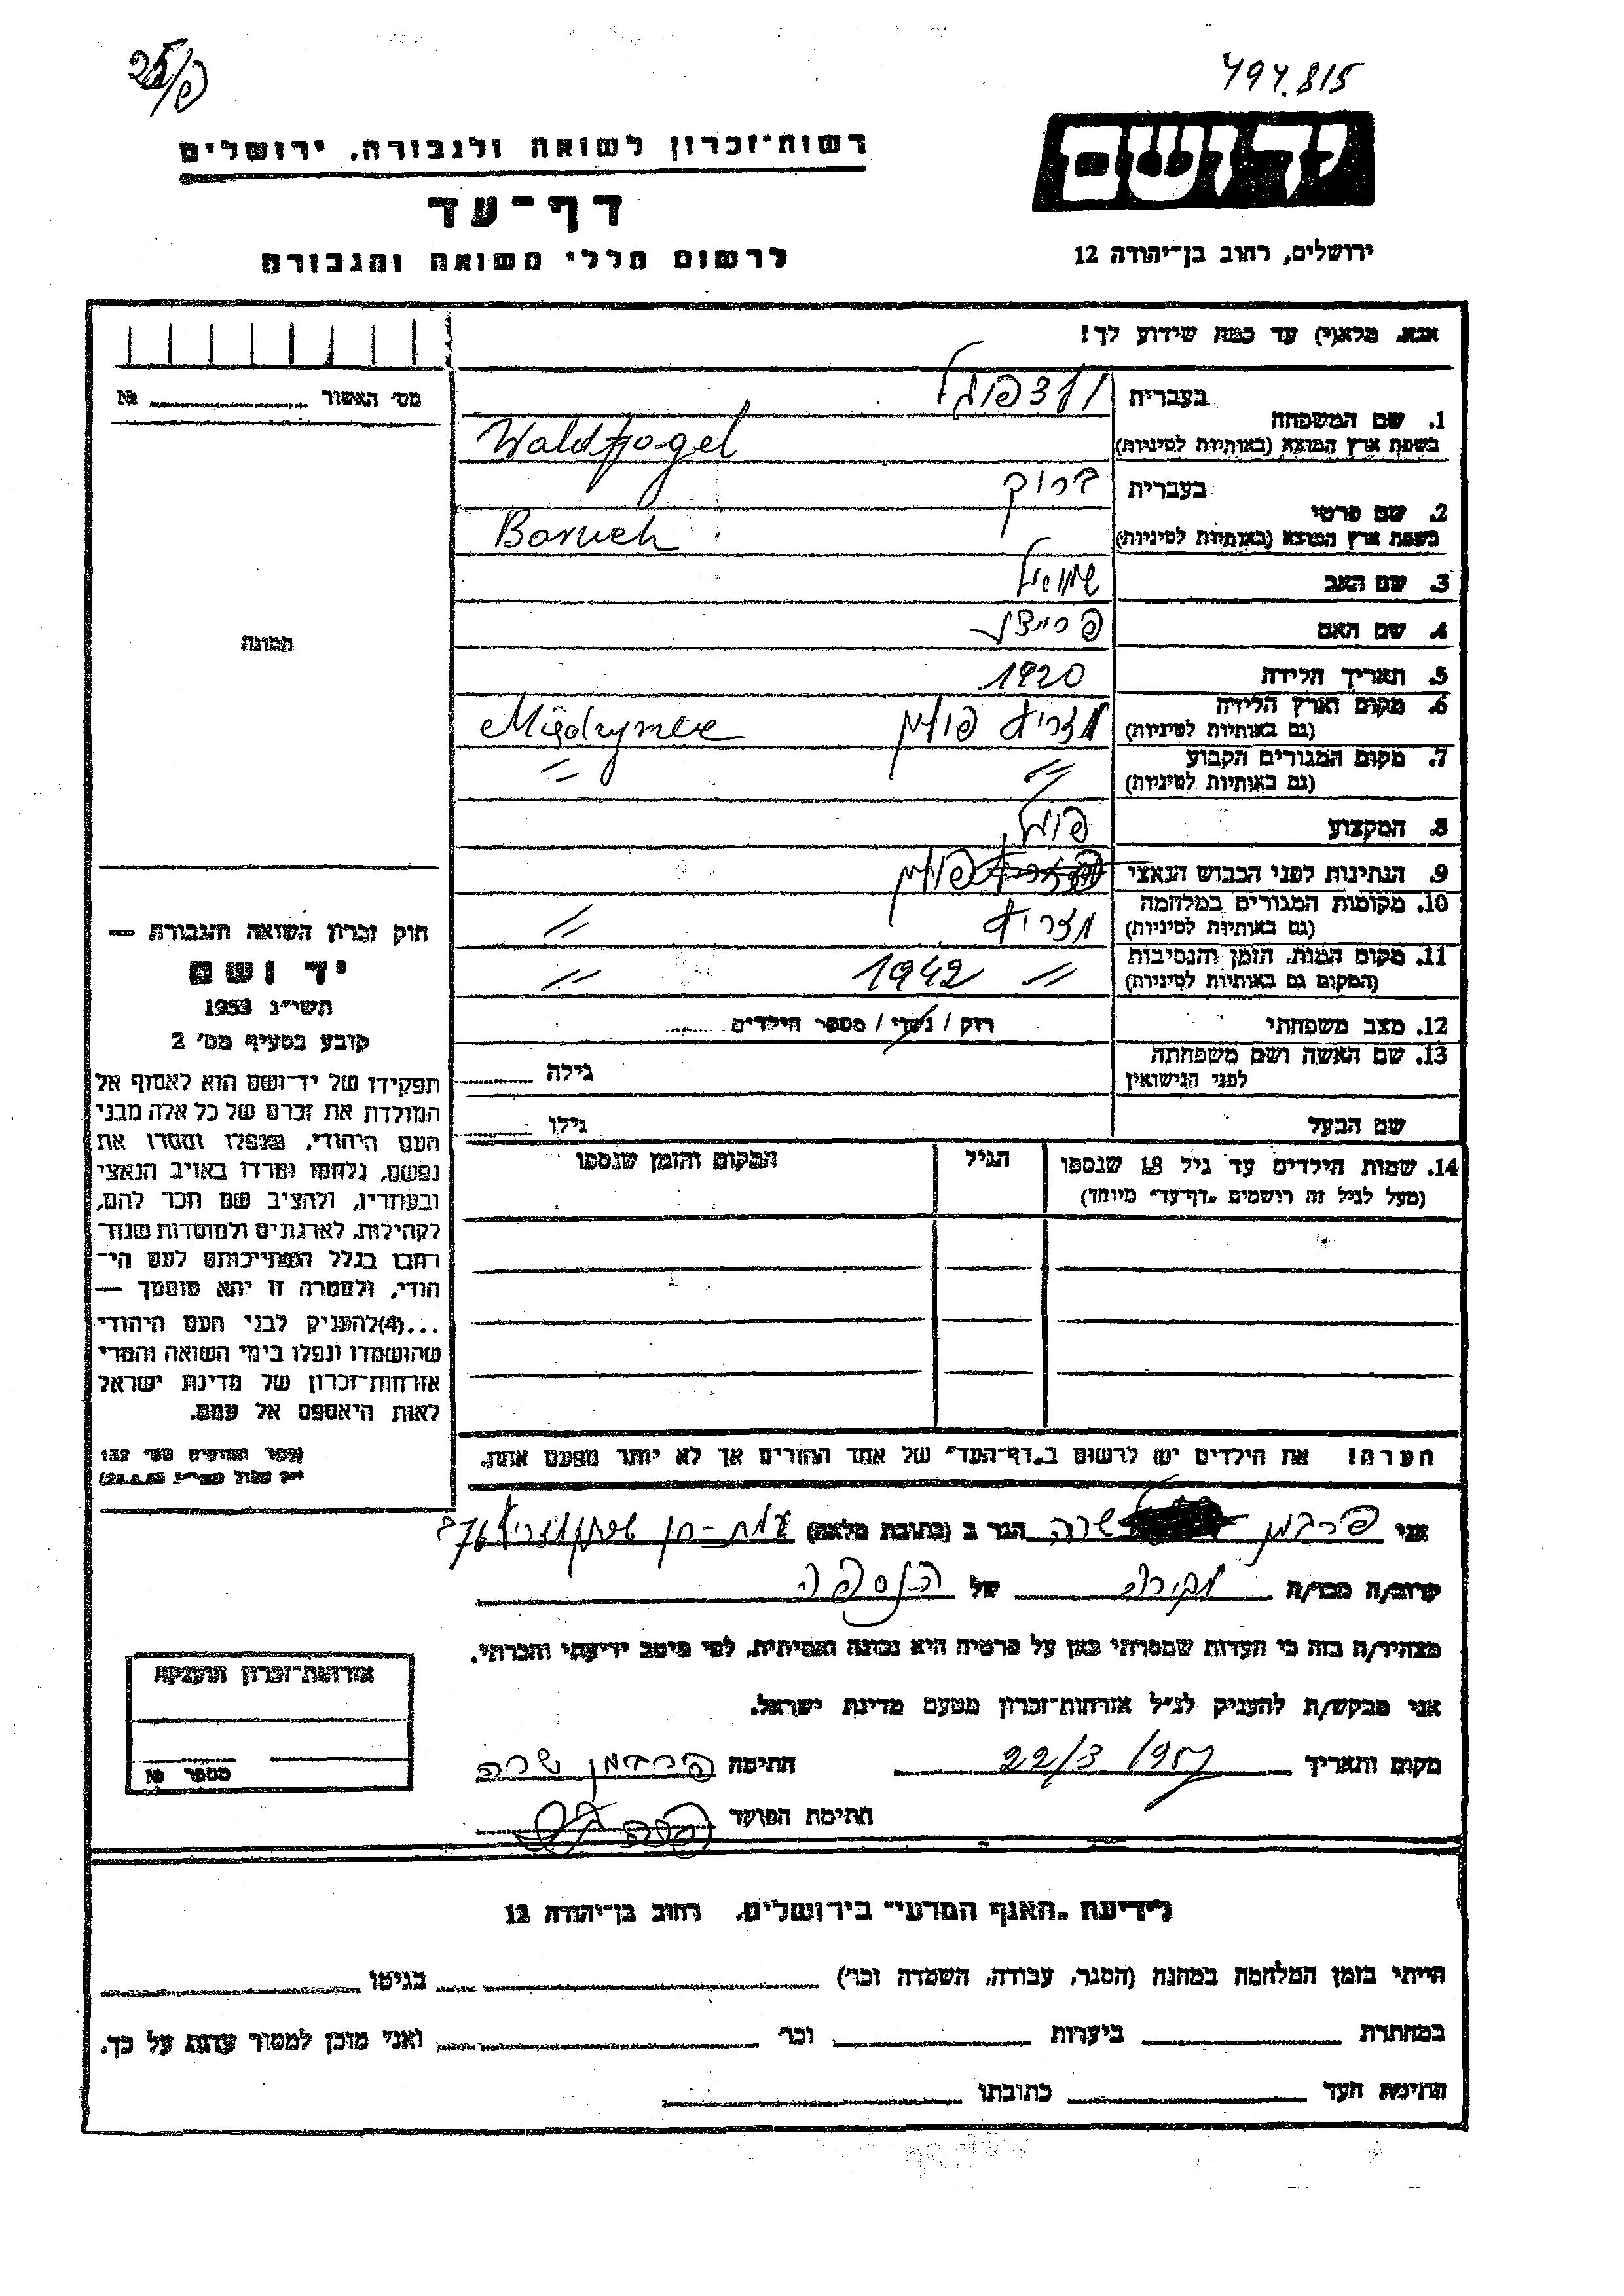 25/פ
494.815
רשות־זכרון לשואה ולגבורה, ירושלים
דף־עד
לרשום חללי השואה והגבורה
ידושם
ירושלים, רחוב בן־יהודה 12
אנא, מלא(י) עד כמה שידוע לך!
מס׳ האשור № 
1. שם המשפחה
בעברית
בשפת ארץ המוצא (באותיות לטיניות) Waldfogel
2. שם פרטי
בעברית ברוך
בשפת ארץ המוצא (באותיות לטיניות) Boruch
3. שם האב שמואל
4. שם האם
5. תאריך הלידה 1920
6. מקום וארץ הלידה (גם באותיות לטיניות) פולין
7. מקום המגורים הקבוע (גם באותיות לטיניות)〃 〃
8. המקצוע פועל
9. הנתינות לפני הכבוש הנאצי פולין
10. מקומות המגורים במלחמה (גם באותיות לטיניות) 〃
11. מקום המות, הזמן והנסיבות (המקום גם באותיות לטיניות) 〃 1942 〃
12. מצב משפחתי רוק / נשוי / מספר הילדים
13. שם האשה ושם משפחתה לפני הנישואין גילה
שם הבעל גילו
14. שמות הילדים עד גיל 18 שנספו הגיל המקום והזמן שנספו
(מעל לגיל זה רושמים „דף־עד״ מיוחד)
תמונה
חוק זכרון השואה והגבורה —
יד ושם
תשי״ג 1953
קובע בסעיף מס׳ 2
תפקידו של יד־ושם הוא לאסוף אל
המולדת את זכרם של כל אלה מבני
העם היהודי, שנפלו ומסרו את
נפשם, נלחמו ומרדו באויב הנאצי
ובעוזריו, ולהציב שם וזכר להם,
לקהילות, לארגונים ולמוסדות שנח־
רבו בגלל השתייכותם לעם הי־
הודי, ולמטרה זו יהא מוסמך —
...(4)להעניק לבני העם היהודי
שהושמדו ונפלו בימי השואה והמרי
אזרחות־זכרון של מדינת ישראל
לאות היאספם אל עמם.
(ספר החוקים מס׳ 132
הערה! את הילדים יש לרשום ב„דף־העד״ של אחד ההורים אך לא יותר מפעם אחת.
אני פרבמן שרה הגר ב (כתובת מלאה)
קרוב/ה מכר/ה מכירה של הנספה
מצהיר/ה בזה כי העדות שמסרתי כאן על פרטיה היא נכונה ואמיתית, לפי מיטב ידיעתי והכרתי.
אני מבקש/ת להעניק לנ״ל אזרחות־זכרון מטעם מדינת ישראל.
מקום ותאריך 22/3 1957 חתימה פרבמן שרה
חתימת הפוקד
אזרחות־זכרון הוענקה
מספר №
לידיעת „האגף המדעי״ בירושלים, רחוב בן־יהודה 12
הייתי בזמן המלחמה במחנה (הסגר, עבודה, השמדה וכו׳) בגיטו
במחתרת ביערות וכו׳ ואני מוכן למסור עדות על כך.
חתימת העד כתובתו